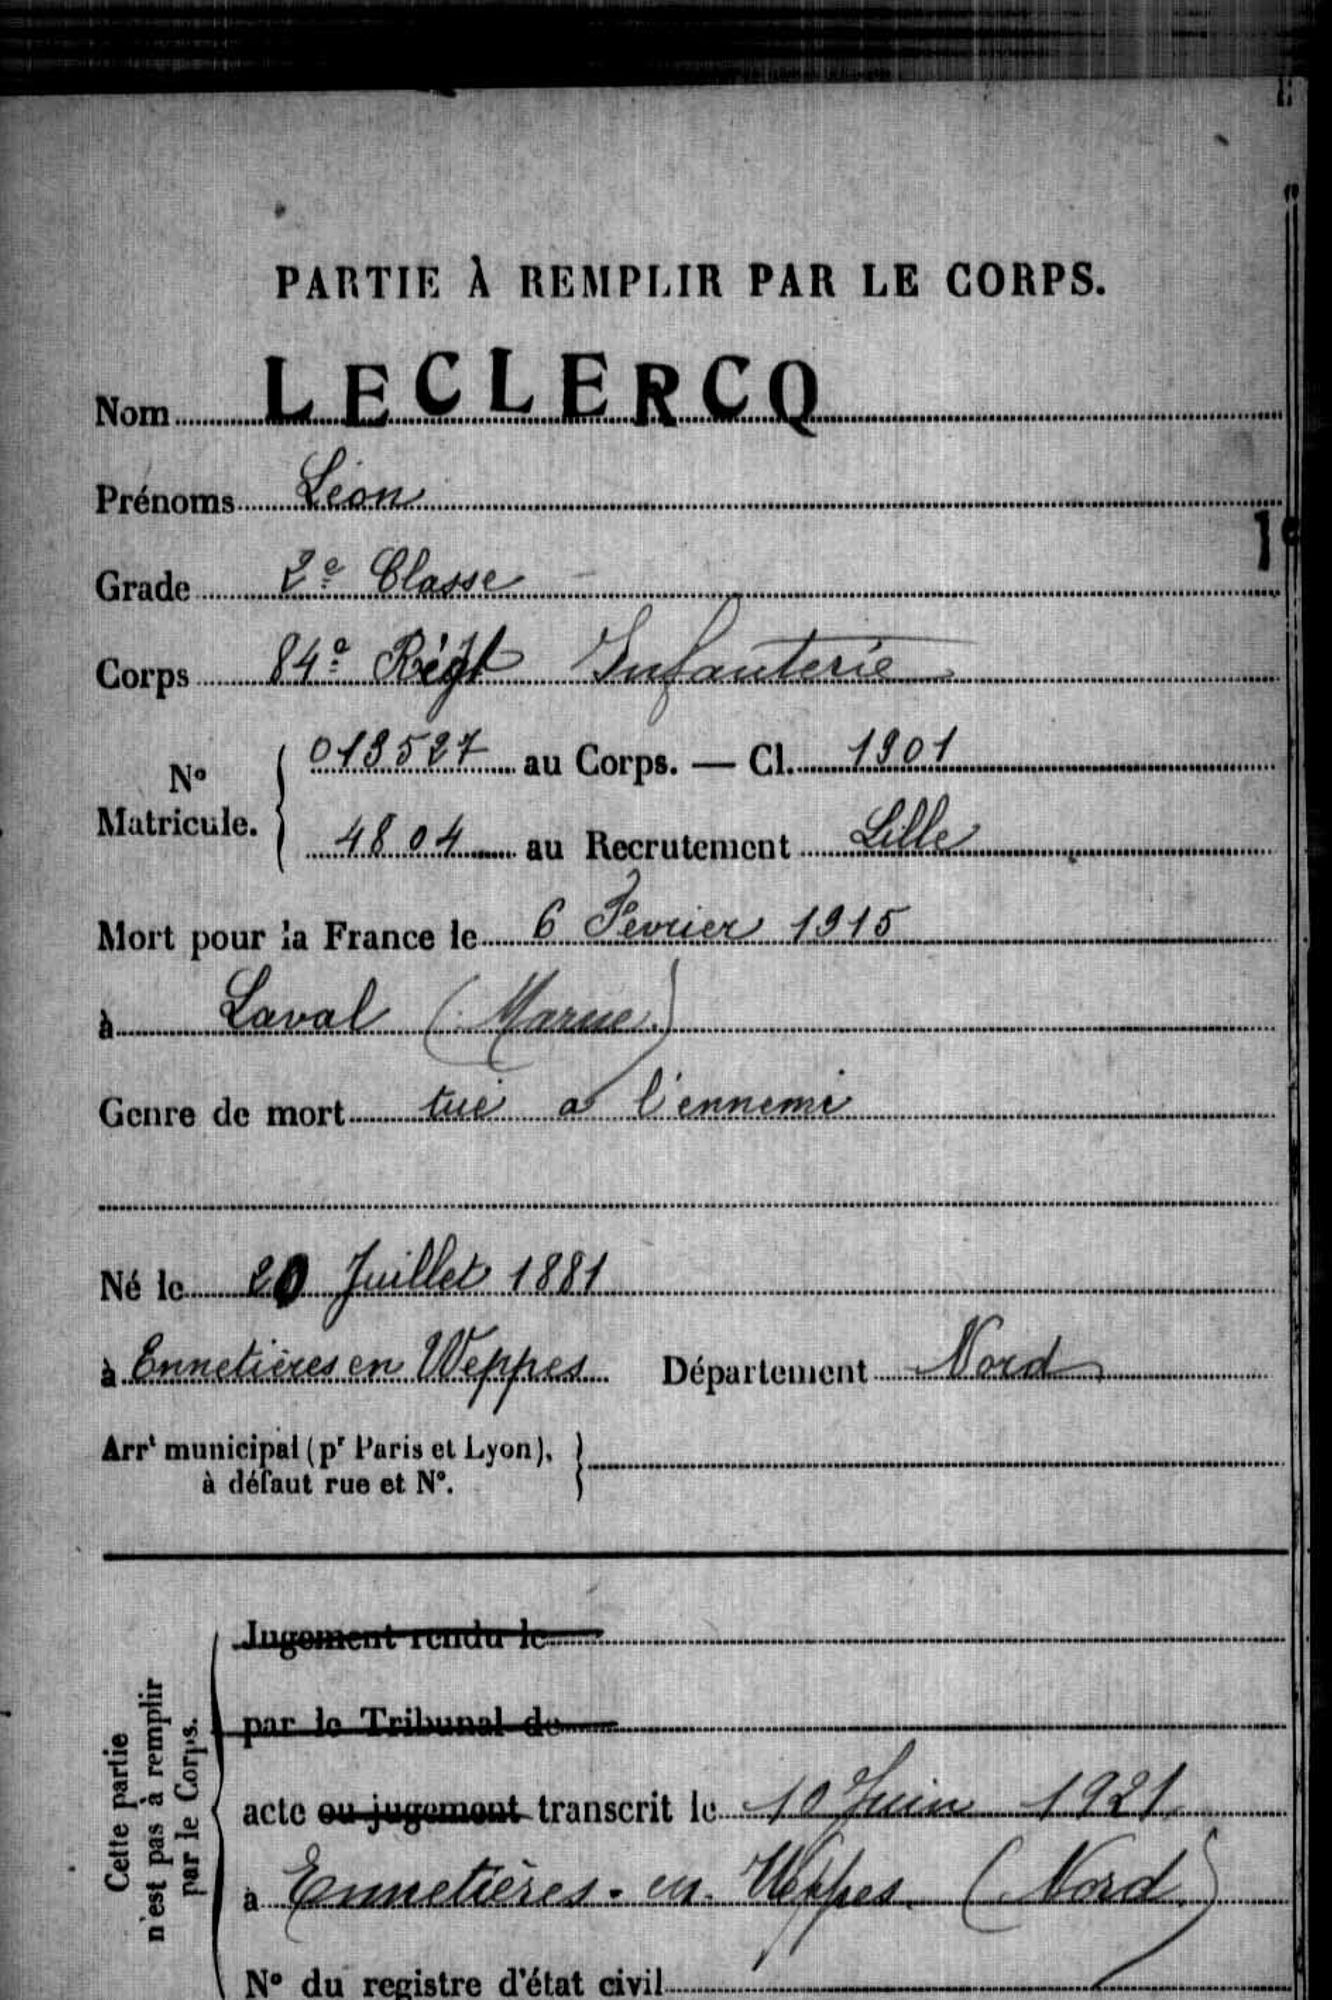 PARTIE À REMPLIR PAR LE CORPS.
Nom LECLERCQ
Prénoms Léon
Grade 2e Classe
Corps 84e Régt Infanterie
No Matricule. 013527 au Corps. — Cl. 1901
4804 au Recrutement Lille
Mort pour la France le 6 Fevrier 1915
à Laval (Marne)
Genre de mort tué a l'ennemi
Né le 20 Juillet 1881
à Ennetières en Weppes Département Nord
Arrt municipal (pr Paris et Lyon),
à défaut rue et No.
Cette partie
n'est pas à remplir
par le Corps.
Jugement rendu le
par le Tribunal de
acte ou jugement transcrit le 10 Juin 1921
à Ennetières-en-Weppes (Nord)
No du registre d'état civil